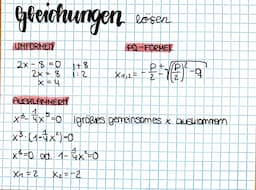 Gleichungen lösen
UMFORMEN
2x - 8 = 0 | +8
2x = 8 | : 2
x = 4
PQ - FORMEL
x₁,₂ = - p/2 ± √((p/2)² - q)
AUSKLAMMERN
x³ - ¼x⁵ = 0 | größtes gemeinsames x ausklammern
x³ · (1 - ¼x²) = 0
x³ = 0 od. 1 - ¼x² = 0
x₁ = 2 x₂ = -2